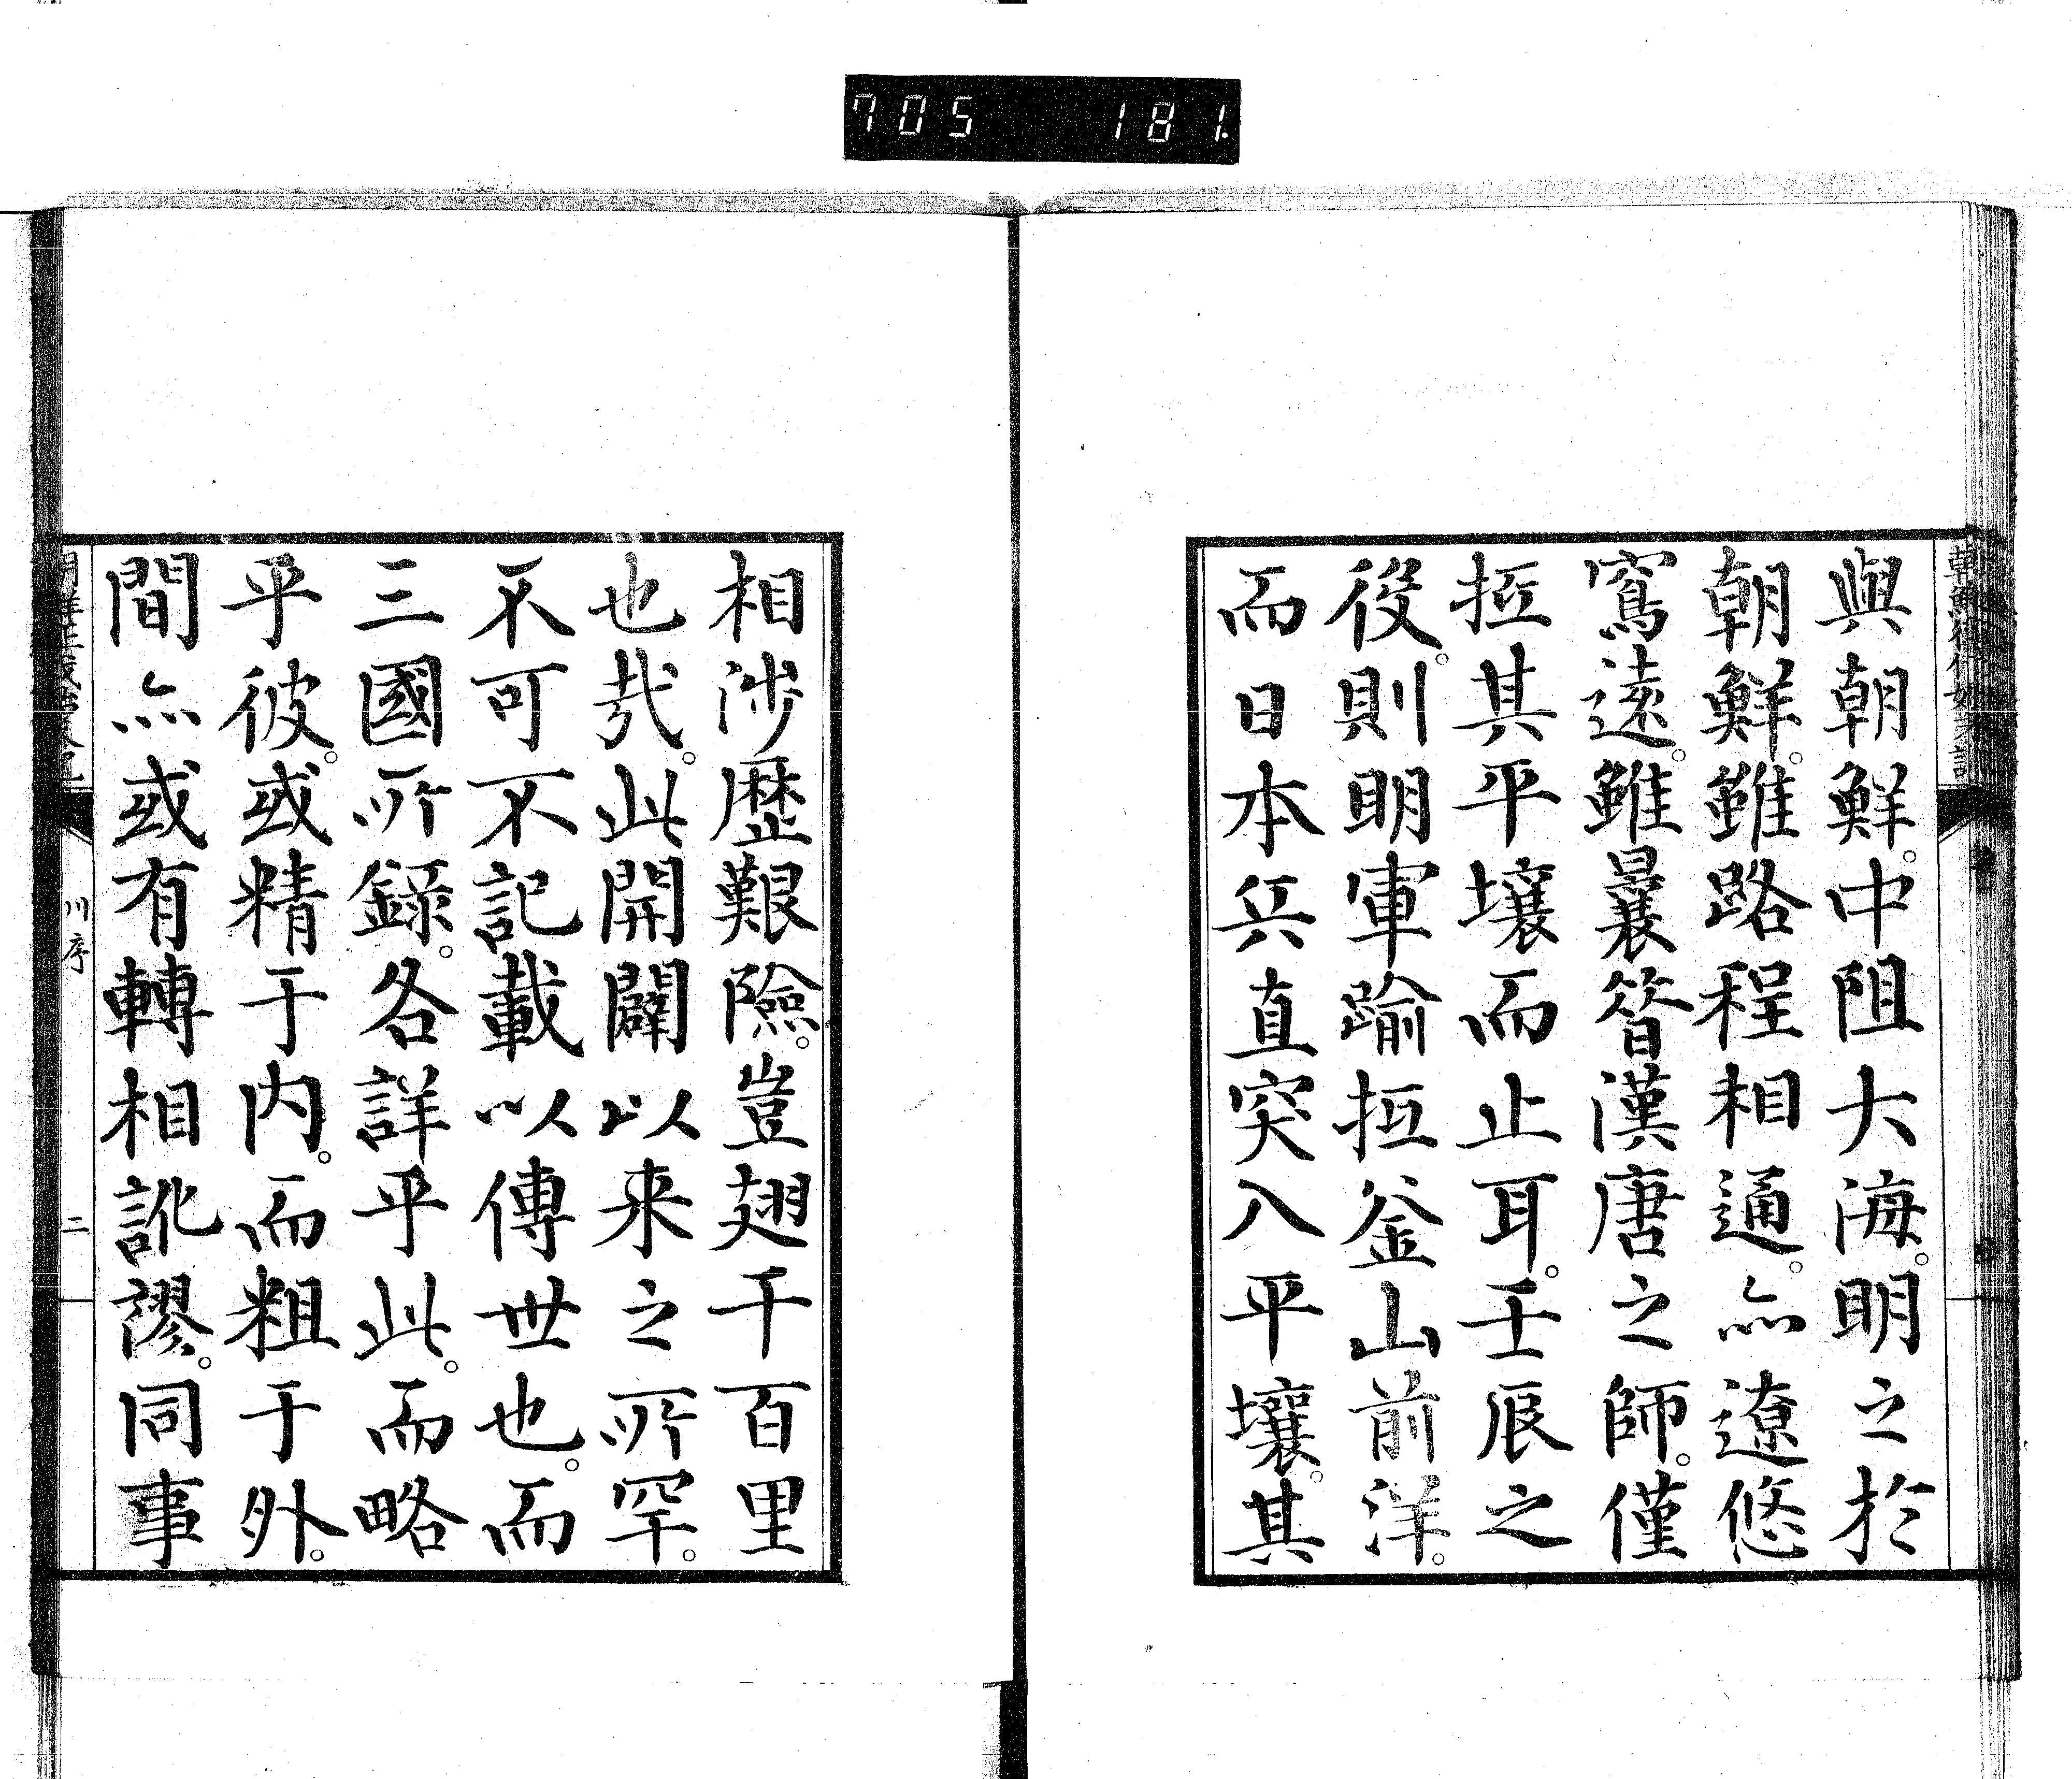 705 181
與朝鮮。中阻大海。明之於
朝鮮。雖路程相通。亦遼悠
窵遠。雖曩簪漢唐之師。僅
抂其平壤而止耳。壬辰之
役。則明軍踰抂釜山前洋。
而日本兵直突入平壤。其
相涉歷艱險。豈翅千百里
也哉。此開闢以来之所罕。
不可不記載以傳世也。而
三國所錄。各詳乎此。而略
乎彼。或精于内。而粗于外。
間亦或有轉相訛謬。同事
川序
二